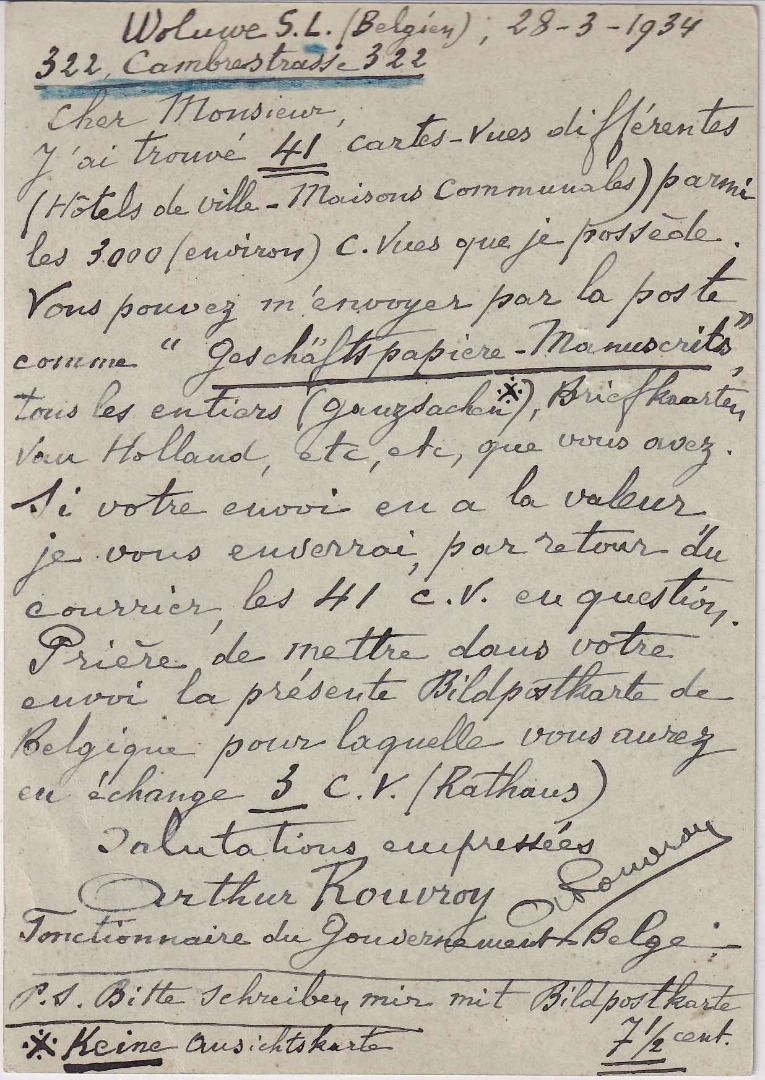 Woluwe S.L. (Belgien), 28-3-1934
322, Cambrestrasse 322
Cher Monsieur,
J'ai trouvé 41 cartes-vues différentes
(Hôtels de ville - Maisons Communales) parmi
les 3000 (environ) C. Vues que je possède.
Vous pouvez m'envoyer par la poste
comme "Geschäftspapiere - Manuscrits"
tous les entiers (ganzsachen※), Briefkaarten
van Holland, etc, etc, que vous avez.
Si votre envoi en a la valeur
je vous enverrai, par retour du
courrier, les 41 C.V. en question.
Prière de mettre dans votre
envoi la présente Bildpostkarte de
Belgique pour laquelle vous aurez
en échange 3 C.V. (Rathaus)
Salutations empressées
Arthur Rouvroy A. Rouvroy
Fonctionnaire du Gouvernement Belge.
P.S. Bitte schreiben mir mit Bildpostkarte
※ Keine Ansichtskarte 7 1/2 cent.